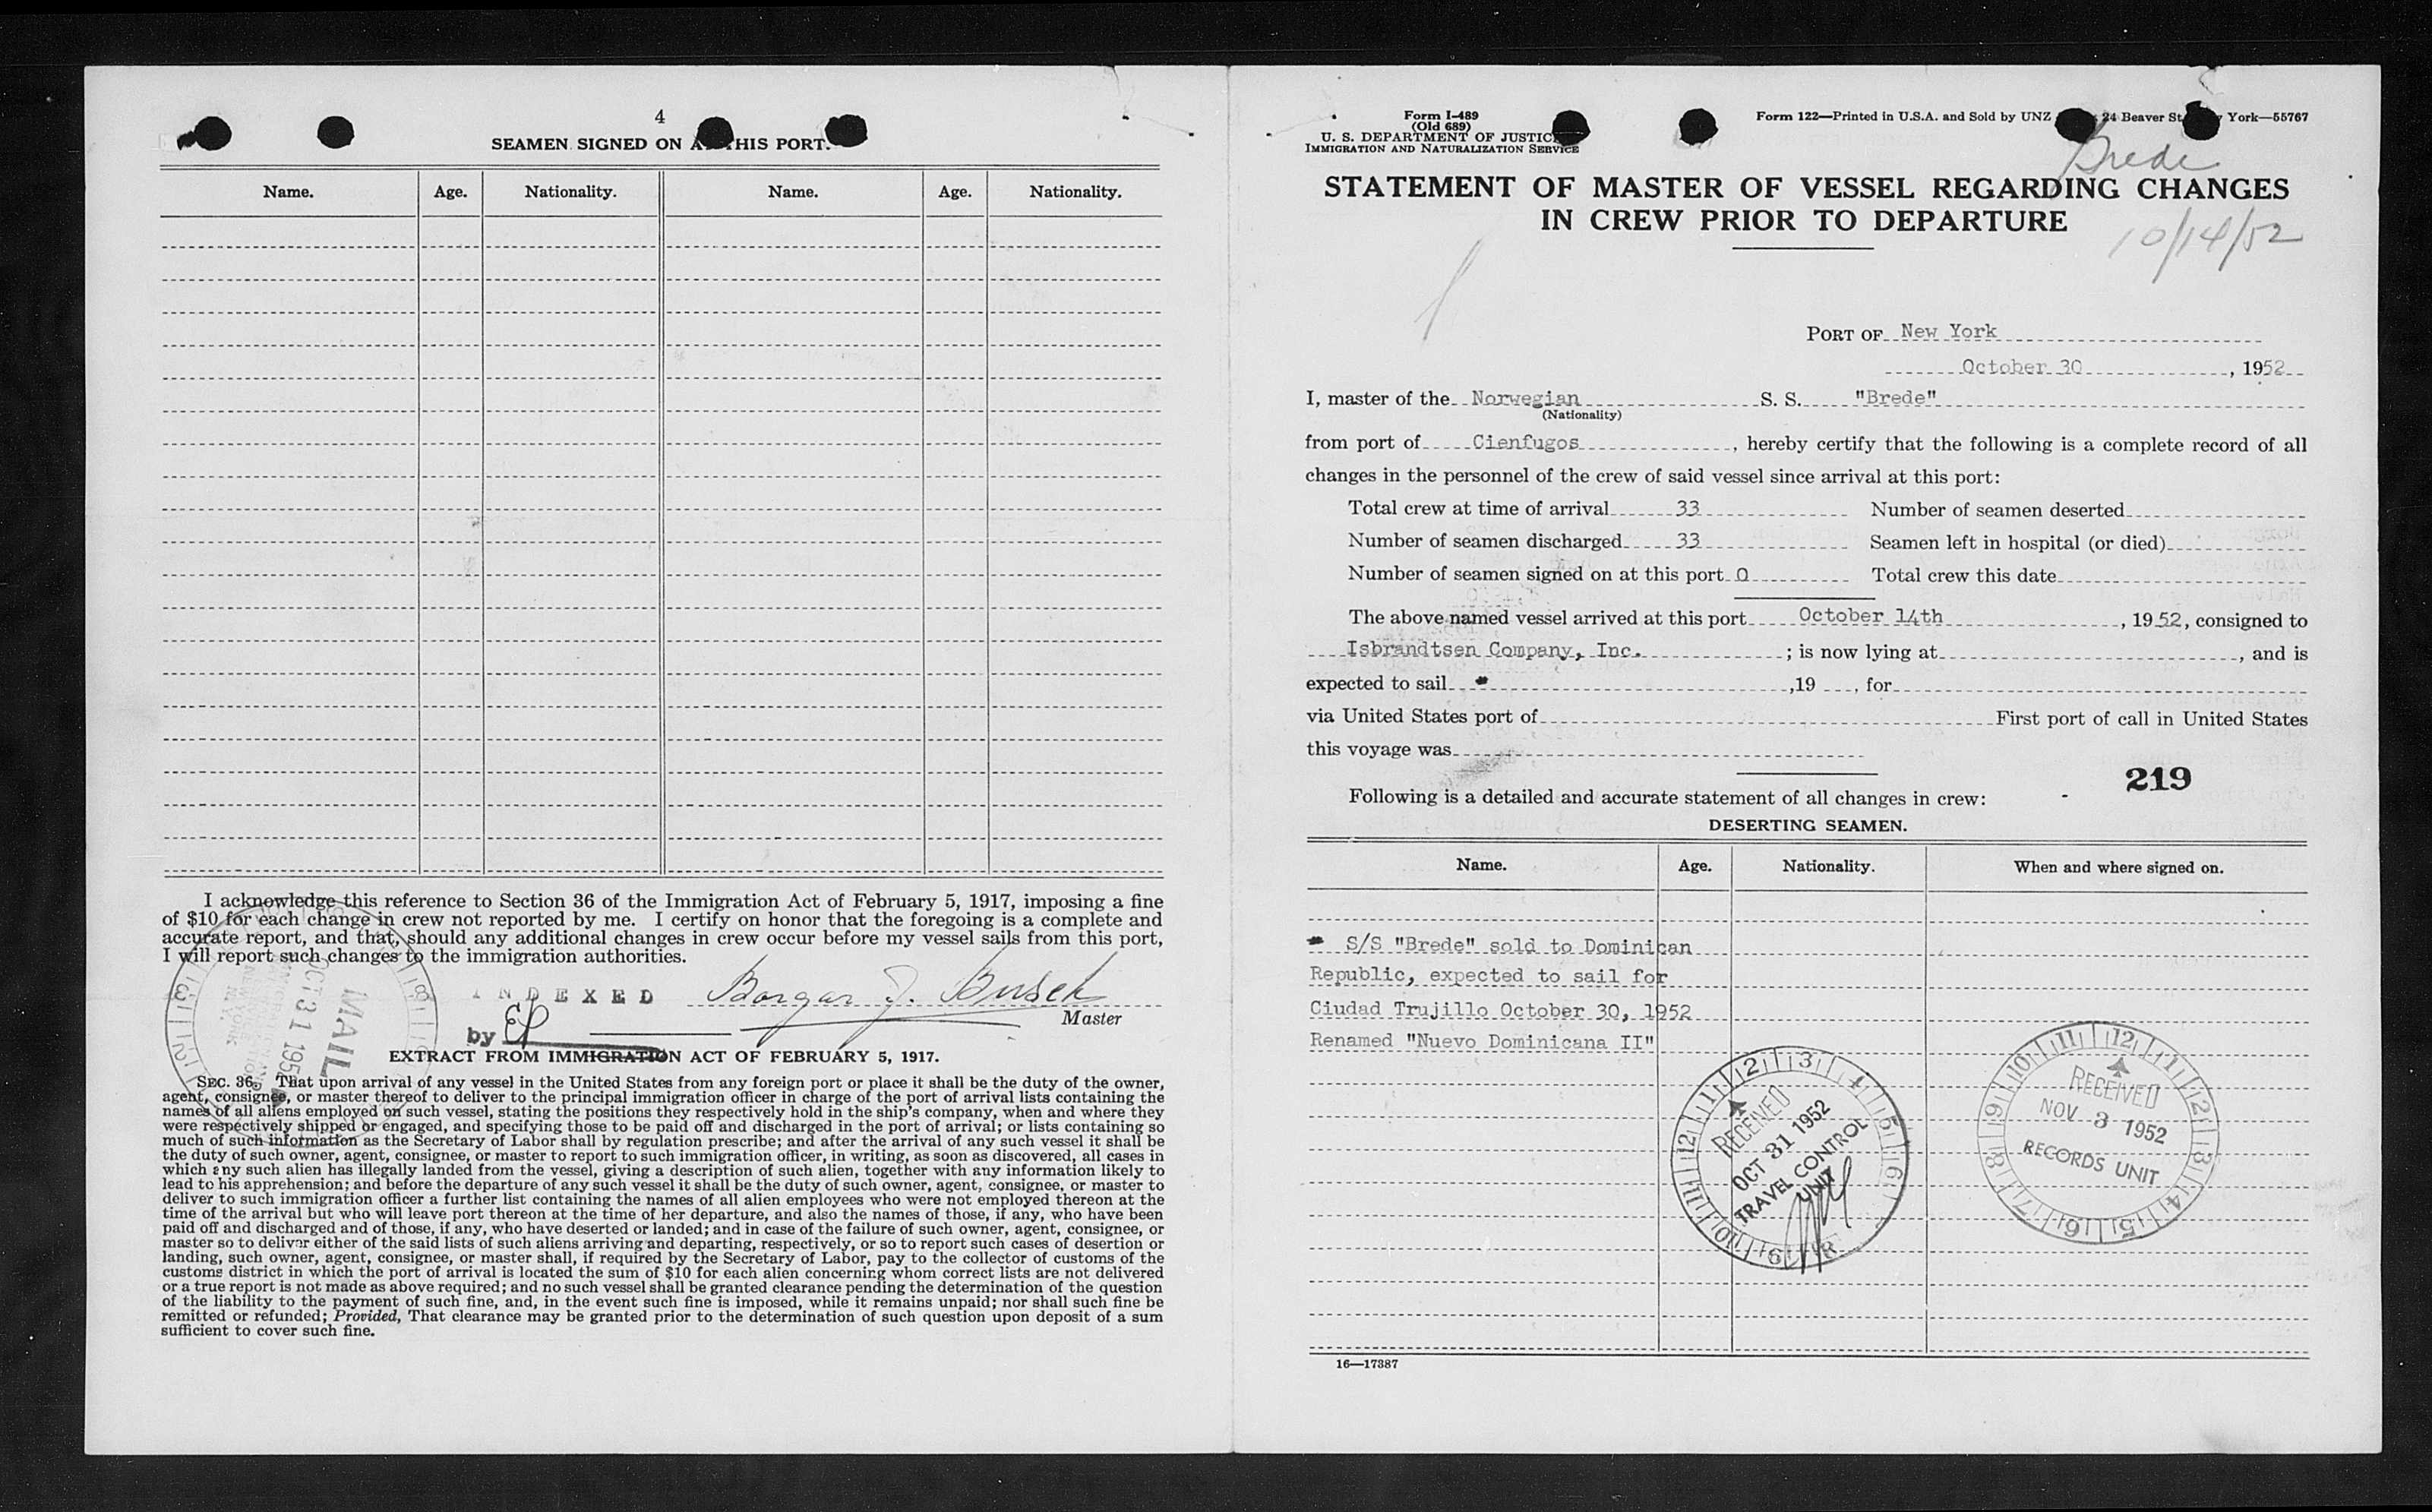 4
SEAMEN SIGNED ON A THIS PORT.
Name. Age. Nationality. Name. Age. Nationality.
I acknowledge this reference to Section 36 of the Immigration Act of February 5, 1917, imposing a fine
of $10 for each change in crew not reported by me. I certify on honor that the foregoing is a complete and
accurate report, and that, should any additional changes in crew occur before my vessel sails from this port,
I will report such changes to the immigration authorities.
INDEXED
by EP
Borgar J. Busch
Master
MAIL
OCT 31 1952
NEW YORK
N. Y.
EXTRACT FROM IMMIGRATION ACT OF FEBRUARY 5, 1917.
SEC. 36. That upon arrival of any vessel in the United States from any foreign port or place it shall be the duty of the owner,
agent, consignee, or master thereof to deliver to the principal immigration officer in charge of the port of arrival lists containing the
names of all aliens employed on such vessel, stating the positions they respectively hold in the ship's company, when and where they
were respectively shipped or engaged, and specifying those to be paid off and discharged in the port of arrival; or lists containing so
much of such information as the Secretary of Labor shall by regulation prescribe; and after the arrival of any such vessel it shall be
the duty of such owner, agent, consignee, or master to report to such immigration officer, in writing, as soon as discovered, all cases in
which any such alien has illegally landed from the vessel, giving a description of such alien, together with any information likely to
lead to his apprehension; and before the departure of any such vessel it shall be the duty of such owner, agent, consignee, or master to
deliver to such immigration officer a further list containing the names of all alien employees who were not employed thereon at the
time of the arrival but who will leave port thereon at the time of her departure, and also the names of those, if any, who have been
paid off and discharged and of those, if any, who have deserted or landed; and in case of the failure of such owner, agent, consignee, or
master so to deliver either of the said lists of such aliens arriving and departing, respectively, or so to report such cases of desertion or
landing, such owner, agent, consignee, or master shall, if required by the Secretary of Labor, pay to the collector of customs of the
customs district in which the port of arrival is located the sum of $10 for each alien concerning whom correct lists are not delivered
or a true report is not made as above required; and no such vessel shall be granted clearance pending the determination of the question
of the liability to the payment of such fine, and, in the event such fine is imposed, while it remains unpaid; nor shall such fine be
remitted or refunded; Provided, That clearance may be granted prior to the determination of such question upon deposit of a sum
sufficient to cover such fine.
Form I-489
(Old 689)
U. S. DEPARTMENT OF JUSTIC
IMMIGRATION AND NATURALIZATION SERVICE
Form 122—Printed in U.S.A. and Sold by UNZ 24 Beaver St York—55767
Brede
STATEMENT OF MASTER OF VESSEL REGARDING CHANGES
IN CREW PRIOR TO DEPARTURE
10/14/52
PORT OF New York
October 30, 1952
I, master of the Norwegian S. S. "Brede"
(Nationality)
from port of Cienfugos, hereby certify that the following is a complete record of all
changes in the personnel of the crew of said vessel since arrival at this port:
Total crew at time of arrival 33 Number of seamen deserted
Number of seamen discharged 33 Seamen left in hospital (or died)
Number of seamen signed on at this port 0 Total crew this date
The above named vessel arrived at this port October 14th, 1952, consigned to
Isbrandtsen Company, Inc.; is now lying at , and is
expected to sail * ,19 , for
via United States port of First port of call in United States
this voyage was
219
Following is a detailed and accurate statement of all changes in crew:
DESERTING SEAMEN.
Name. Age. Nationality. When and where signed on.
* S/S "Brede" sold to Dominican
Republic, expected to sail for
Ciudad Trujillo October 30, 1952
Renamed "Nuevo Dominicana II"
RECEIVED
OCT 31 1952
TRAVEL CONTROL
UNIT
RECEIVED
NOV 3 1952
RECORDS UNIT
16—17387